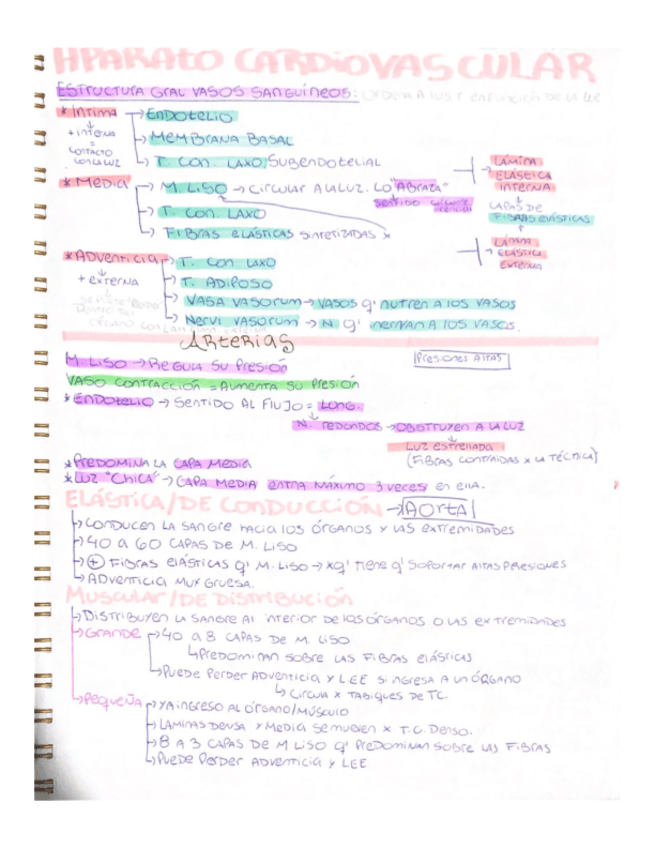 APARATO CARDIOVASCULAR
ESTRUCTURA GRAL VASOS SANGUÍNEOS: ORDEN A LOS T EN FUNCIÓN DE LA LUZ
* Íntima → ENDOTELIO
+ interna = CONTACTO CON LA LUZ
→ MEMBRANA BASAL
→ T. CON. LAXO SUBENDOTELIAL
→ LÁMINA ELÁSTICA INTERNA
* MEDIA → M. LISO → CIRCULAR A LA LUZ. LO "ABRAZA"
SENTIDO
CAPAS DE FIBRAS ELÁSTICAS
→ T. CON. LAXO
→ FIBRAS ELÁSTICAS SINTETIZADAS X
→ LÁMINA ELÁSTICA EXTERNA
* ADVENTICIA → T. CON LAXO
+ externa
→ T. ADIPOSO
→ VASA VASORUM → VASOS q' NUTREN A LOS VASOS
→ NERVI VASORUM → N. q' INERVAN A LOS VASOS.
ARTERIAS
M LISO → REGULA SU PRESIÓN
PRESIONES ALTAS
VASO CONTRACCIÓN = AUMENTA SU PRESIÓN
* ENDOTELIO → SENTIDO AL FLUJO = LONG.
N. REDONDOS → OBSTRUYEN A LA LUZ
LUZ ESTRELLADA
(FIBRAS CONTRAÍDAS X LA TÉCNICA)
* PREDOMINA LA CAPA MEDIA
* LUZ "CHICA" → CAPA MEDIA ENTRA MÁXIMO 3 VECES EN ELLA.
ELÁSTICA/DE CONDUCCIÓN → AORTA
→ CONDUCEN LA SANGRE HACIA LOS ÓRGANOS Y LAS EXTREMIDADES
→ 40 A 60 CAPAS DE M. LISO
→ + FIBRAS ELÁSTICAS q' M. LISO → xq' TIENE q' SOPORTAR ALTAS PRESIONES
→ ADVENTICIA MUY GRUESA.
MUSCULAR/DE DISTRIBUCIÓN
→ DISTRIBUYEN LA SANGRE AL INTERIOR DE LOS ÓRGANOS O LAS EXTREMIDADES
→ GRANDE → 40 A 8 CAPAS DE M. LISO
→ PREDOMINAN SOBRE LAS FIBRAS ELÁSTICAS
→ PUEDE PERDER ADVENTICIA Y LEE SI INGRESA A UN ÓRGANO
→ CIRCULA X TABIQUES DE TC
→ PEQUEÑA → YA INGRESO AL ÓRGANO/MÚSCULO
→ LAMINAS DENSA Y MEDIA SE MUEVEN X T.C. DENSO.
→ 8 A 3 CAPAS DE M LISO q' PREDOMINAN SOBRE LAS FIBRAS
→ PUEDE PERDER ADVENTICIA Y LEE